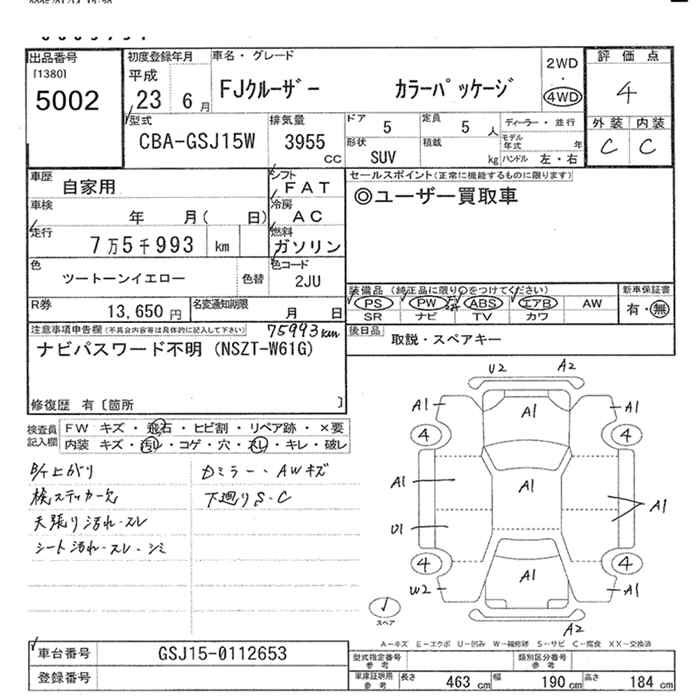 出品番号
[1380]
5002
初度登録年月
平成
23 6 月
車名・グレード
FJクルーザー カラーパッケージ
2WD
・
4WD
評価点
4
外装 内装
C C
型式
CBA-GSJ15W
排気量
3955
CC
ドア 5
定員 5 人
ディーラー・並行
形状 SUV
積載 kg
モデル年式 年
ハンドル 左・右
車歴
自家用
シフト
FAT
車検
年 月( 日)
冷房
AC
走行
7万5千993 km
燃料
ガソリン
色
ツートーンイエロー
色替
色コード
2JU
R券
13,650 円
名変通知期限
月 日
セールスポイント(正常に機能するものに限ります)
◎ユーザー買取車
装備品 (純正品に限り○をつけてください)
新車保証書
PS PW ABS エアB AW
SR ナビ TV カワ
有・無
後日品
取説・スペアキー
注意事項申告欄 (不具合内容等は具体的に記入して下さい)
75993km
ナビパスワード不明 (NSZT-W61G)
修復歴 有〔箇所 〕
検査員記入欄
FW キズ・飛石・ヒビ割・リペア跡・×要
内装 キズ・汚レ・コゲ・穴・スレ・キレ・破レ
B/T上がり
検ステッカー欠
天張り汚れ・スレ
シート汚れ・スレ・シミ
Dミラー・AWキズ
下廻りS・C
U2 A2
A1 A1 A1
4 4
A1 A1 A1
U1
4 4
W2 A1 A1
A2
スペア
A=キズ E=エクボ U=凹み W=補修跡 S=サビ C=腐食 XX=交換済
車台番号
GSJ15-0112653
登録番号
型式指定番号
参考
類別区分番号
参考
車庫証明用
参考
長さ 463 cm 幅 190 cm 高さ 184 cm